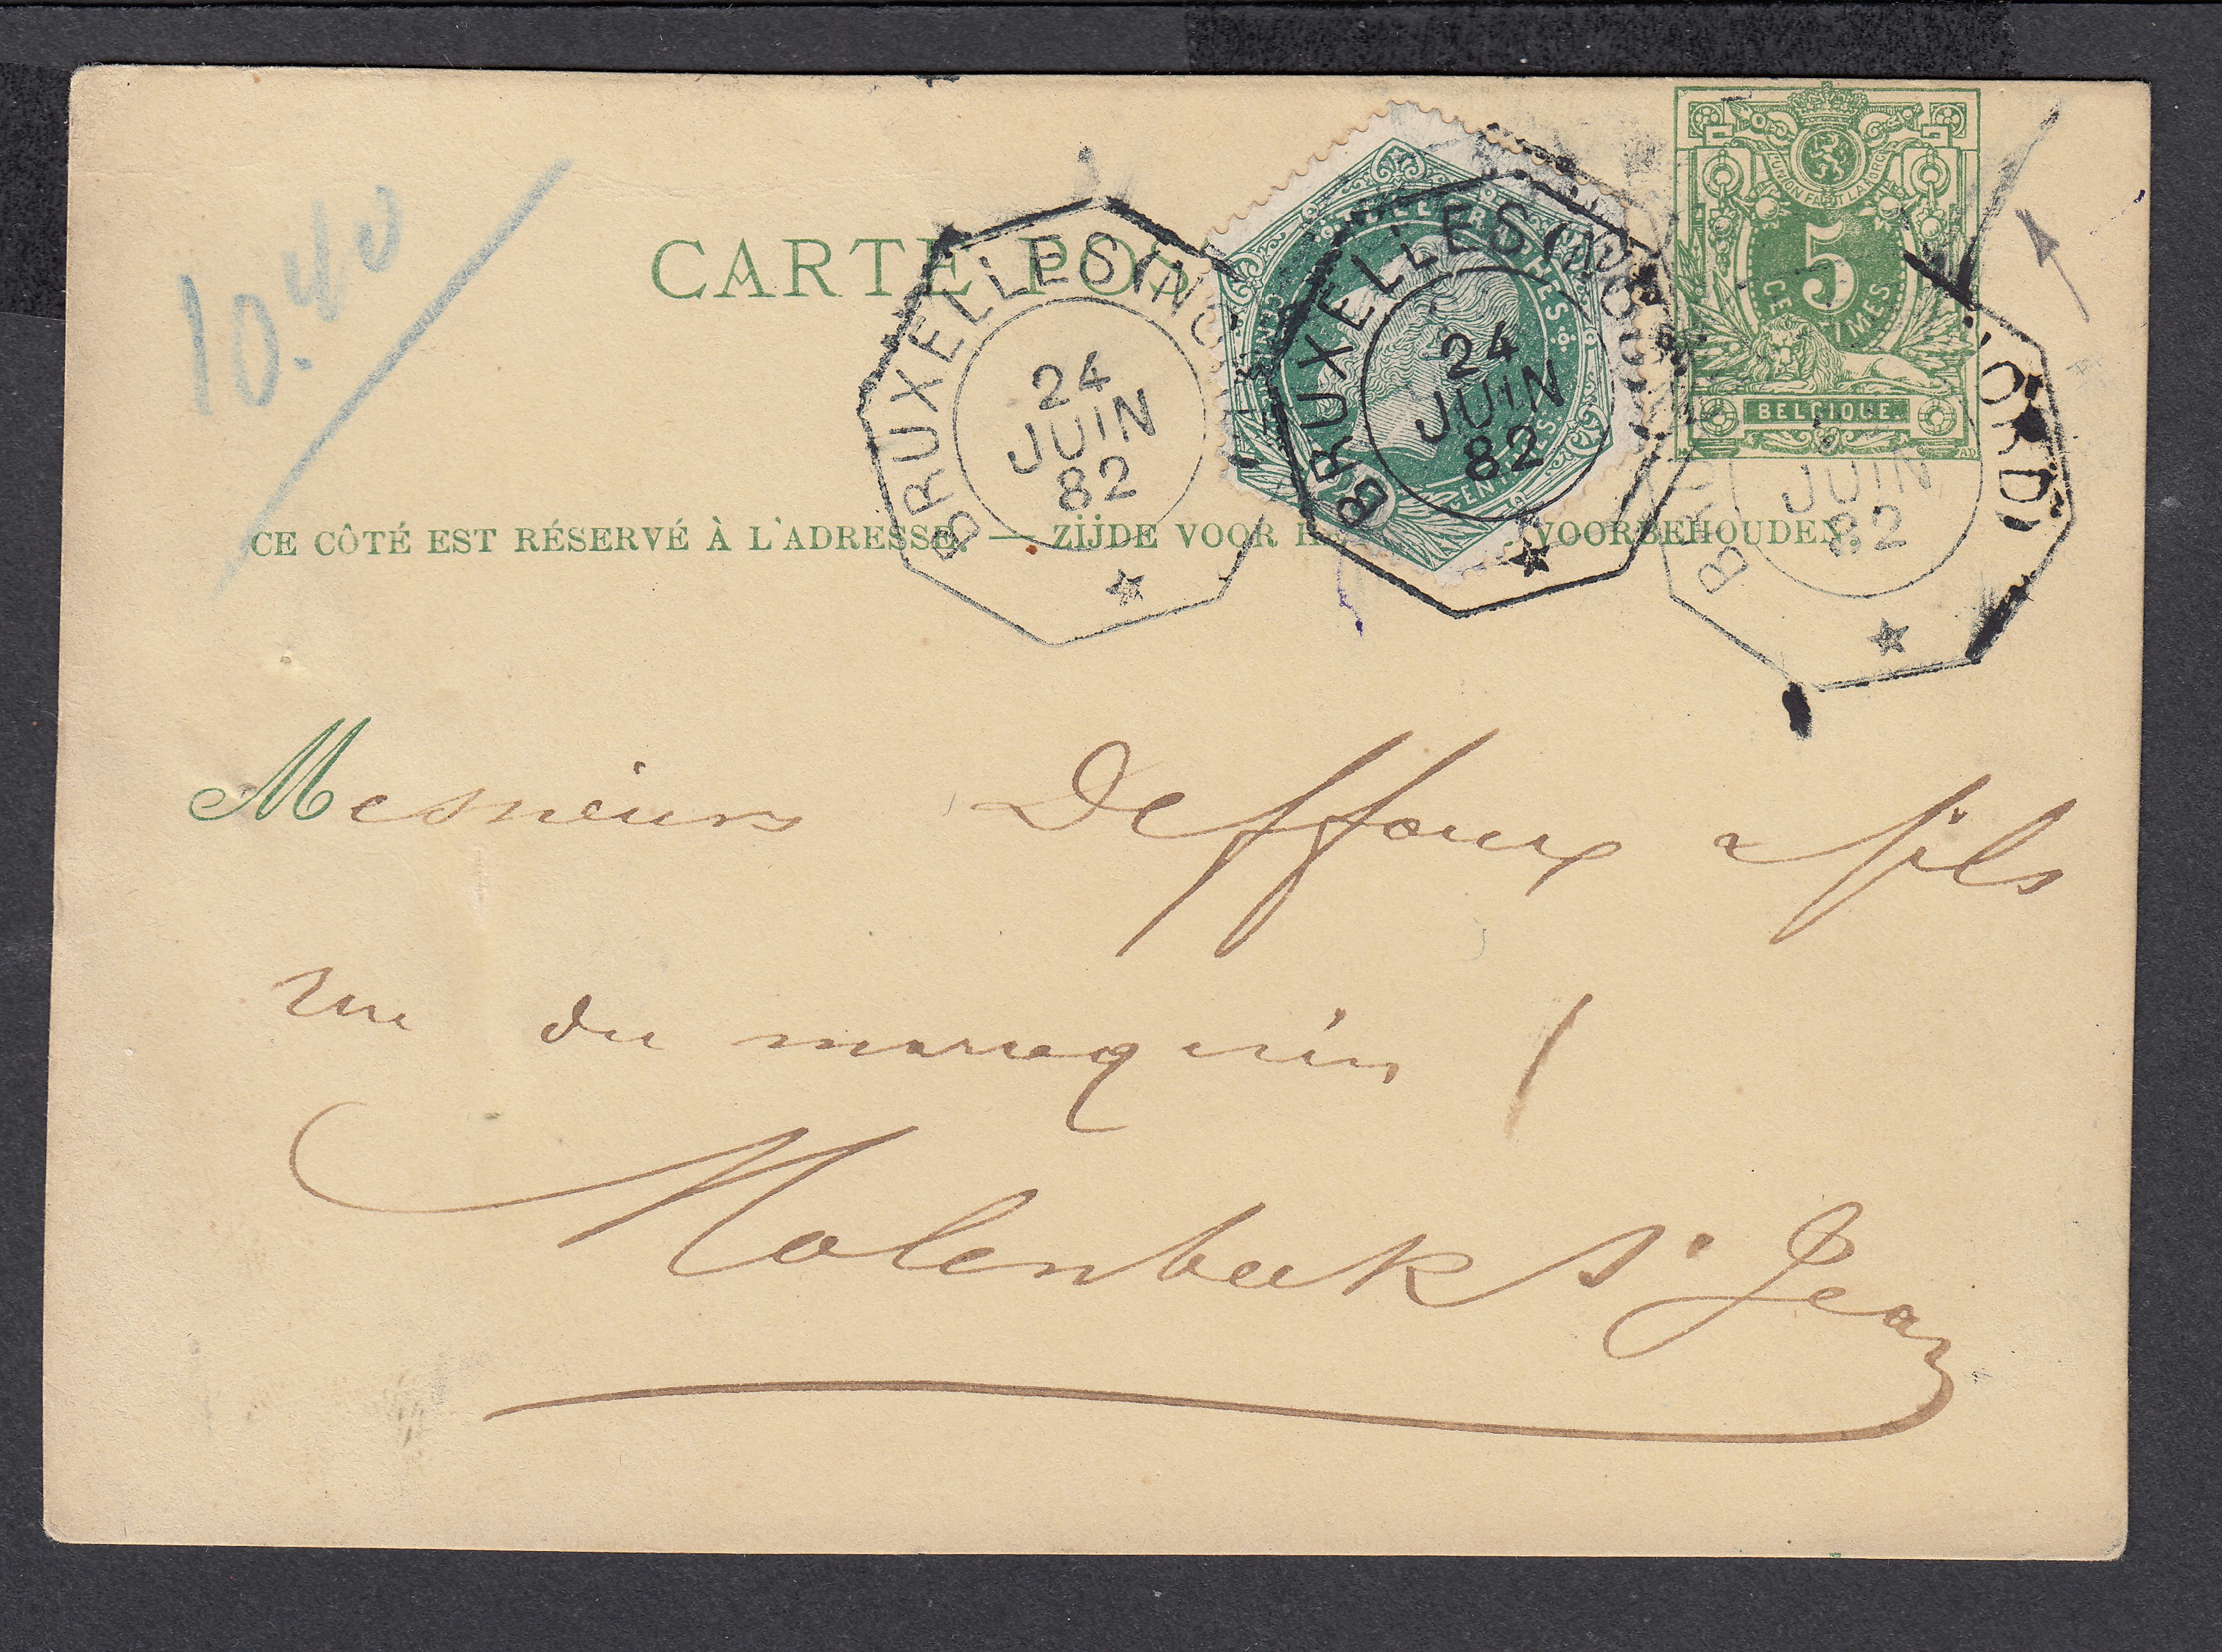 10.40
CARTE POS
TÉLÉGRAPHES
CENTIMES
L'UNION FAIT LA FORCE
5
CENTIMES
BELGIQUE
BRUXELLES (NO
24
JUIN
82
BRUXELLES (NO
24
JUIN
82
B ORD)
JUIN
82
CE CÔTÉ EST RÉSERVÉ À L'ADRESSE. — ZIJDE VOOR H VOORBEHOUDEN.
Messieurs Deffoux & fils
rue du maroquin
Molenbeek St Jean